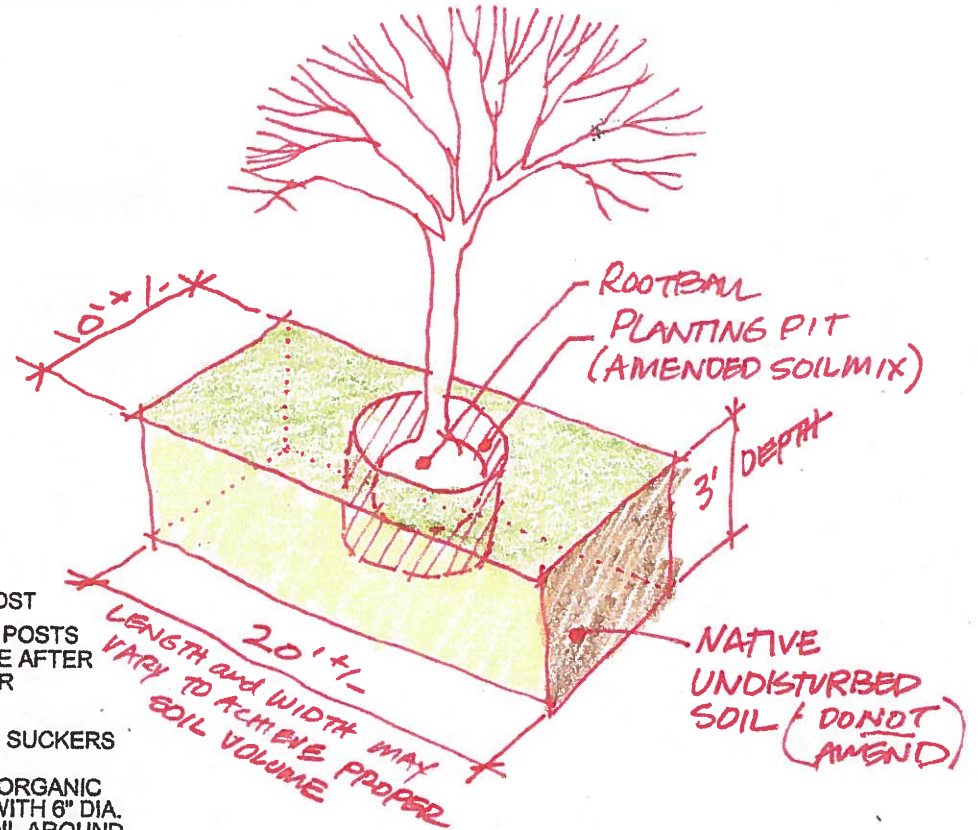 10' +/-
ROOTBALL
PLANTING PIT
(AMENDED SOIL MIX)
3' DEPTH
20' +/-
LENGTH and WIDTH MAY
VARY TO ACHIEVE PROPER
SOIL VOLUME
NATIVE
UNDISTURBED
SOIL (DO NOT
AMEND)
OST
POSTS
E AFTER
R
SUCKERS
ORGANIC
WITH 6" DIA.
IL AROUND